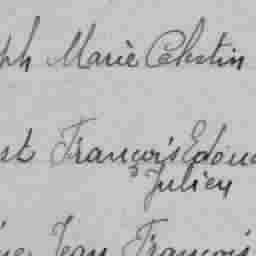 ph Marie Celestin
st François Edou
Julien
ie Jean François